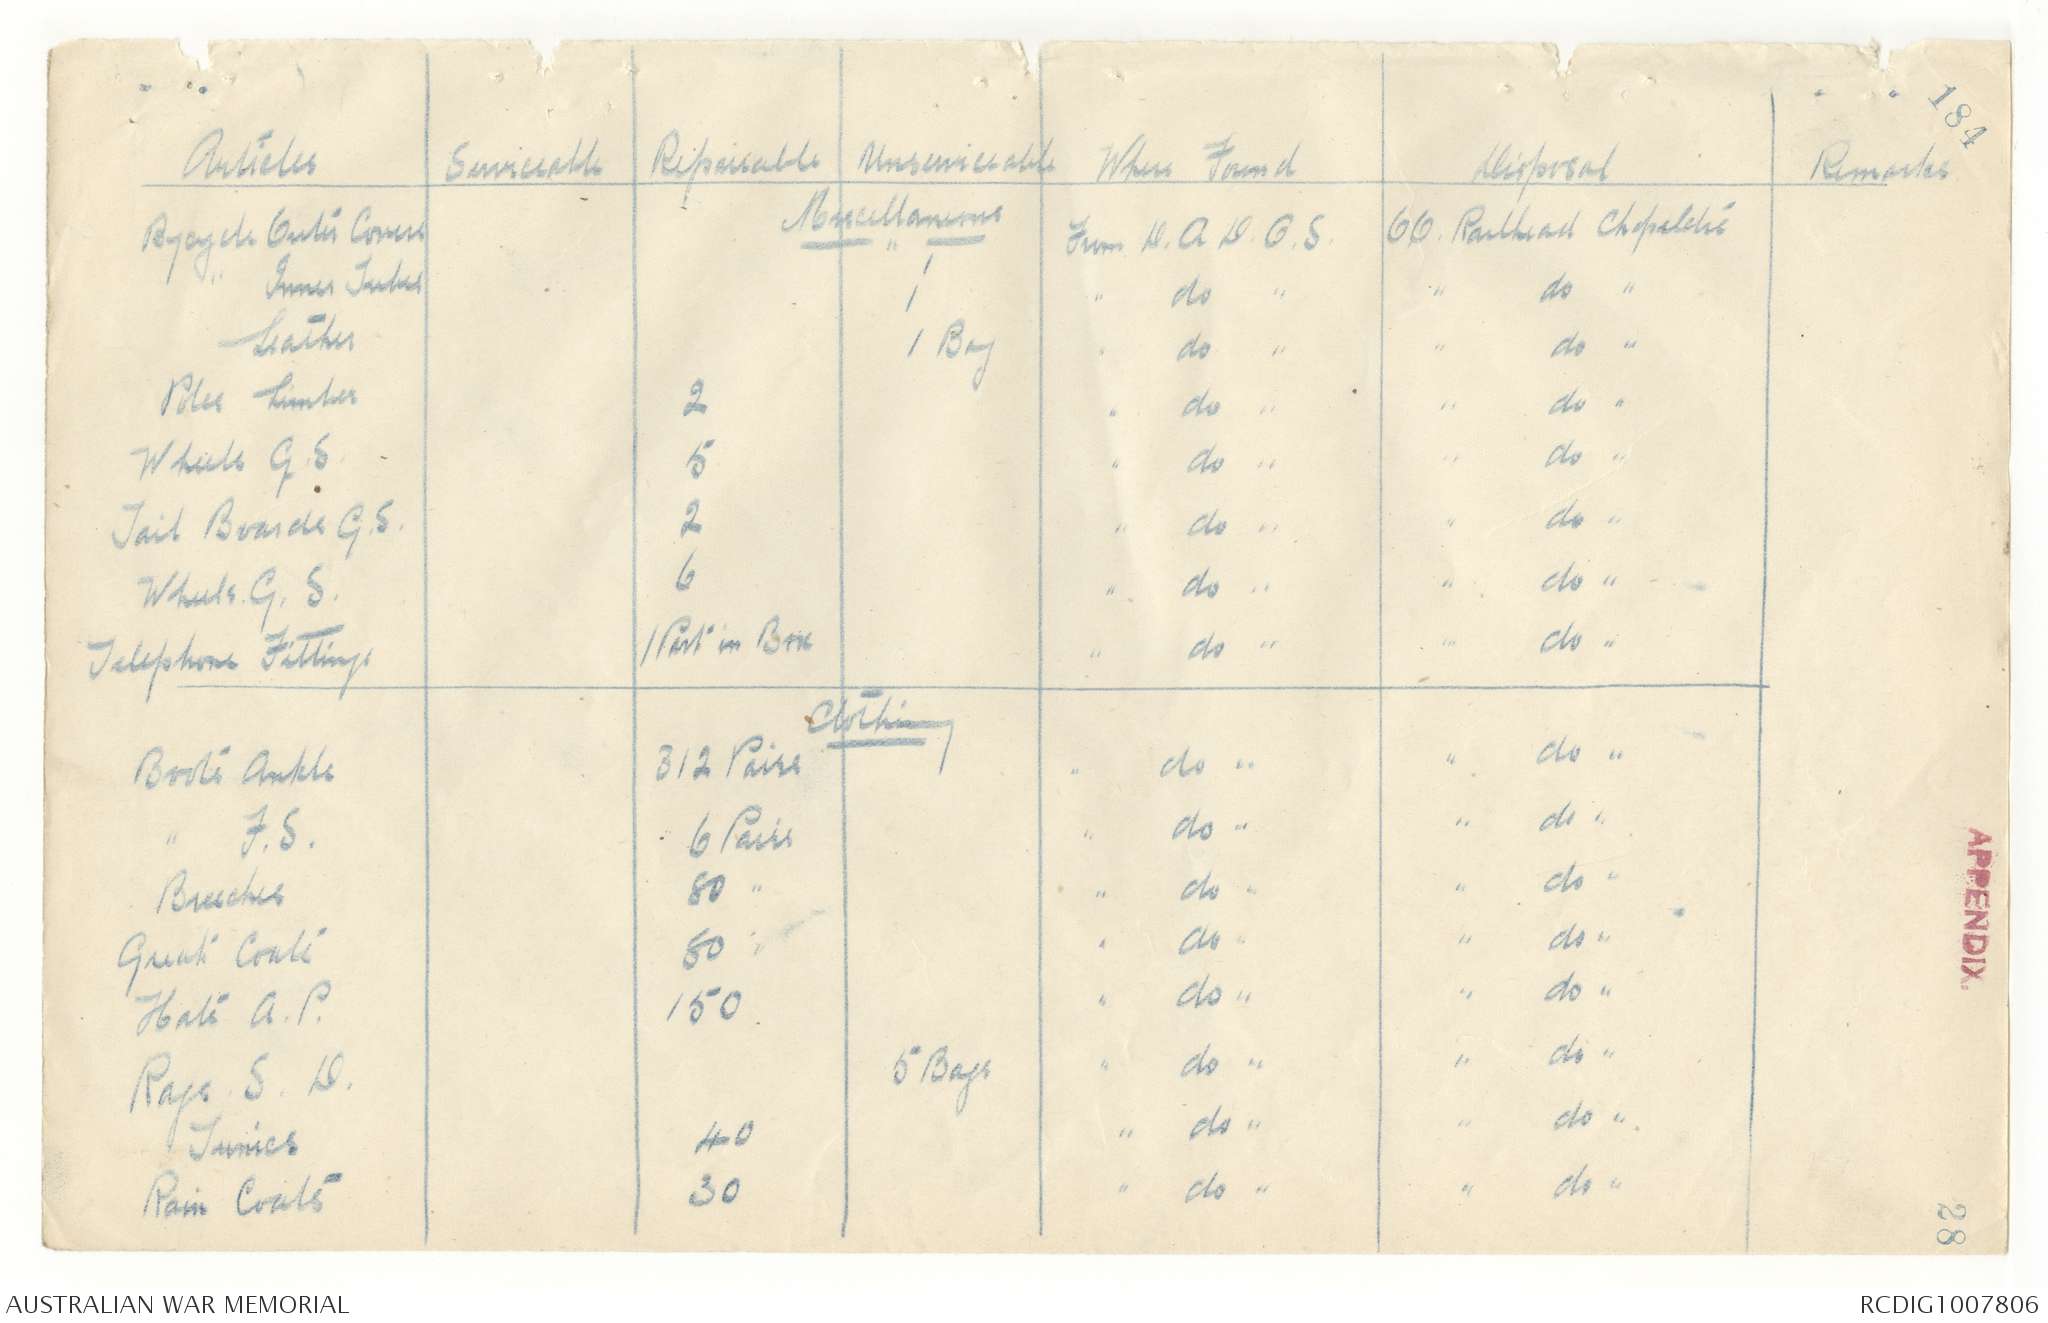 184
Articles Serviceable Repairable Unserviceable Where Found Disposal Remarks
Miscellaneous
Bycycle Outer Covers " From D.A.D.O.S. OO. Railhead
" Inner Tubes 1 " do " " do "
Leather 1 Bag " do " " do "
Poles Limber 2 " do " " do "
Wheels G.S. 5 " do " " do "
Tail Boards G.S. 2 " do " " do "
Wheels G.S. 6 " do " " do "
Telephone Fittings 1 Part in Box " do " " do "
Clothing
Boots Ankle 312 Pairs " do " " do "
" F.S. 6 Pairs " do " " do "
Breeches 80 " " do " " do "
Great Coats 50 " " do " " do "
Hats A.P. 150 " do " " do "
Rags S.D. 5 Bags " do " " do "
Tunics 40 " do " " do "
Rain Coats 30 " do " " do "
APPENDIX.
28
AUSTRALIAN WAR MEMORIAL RCDIG1007806